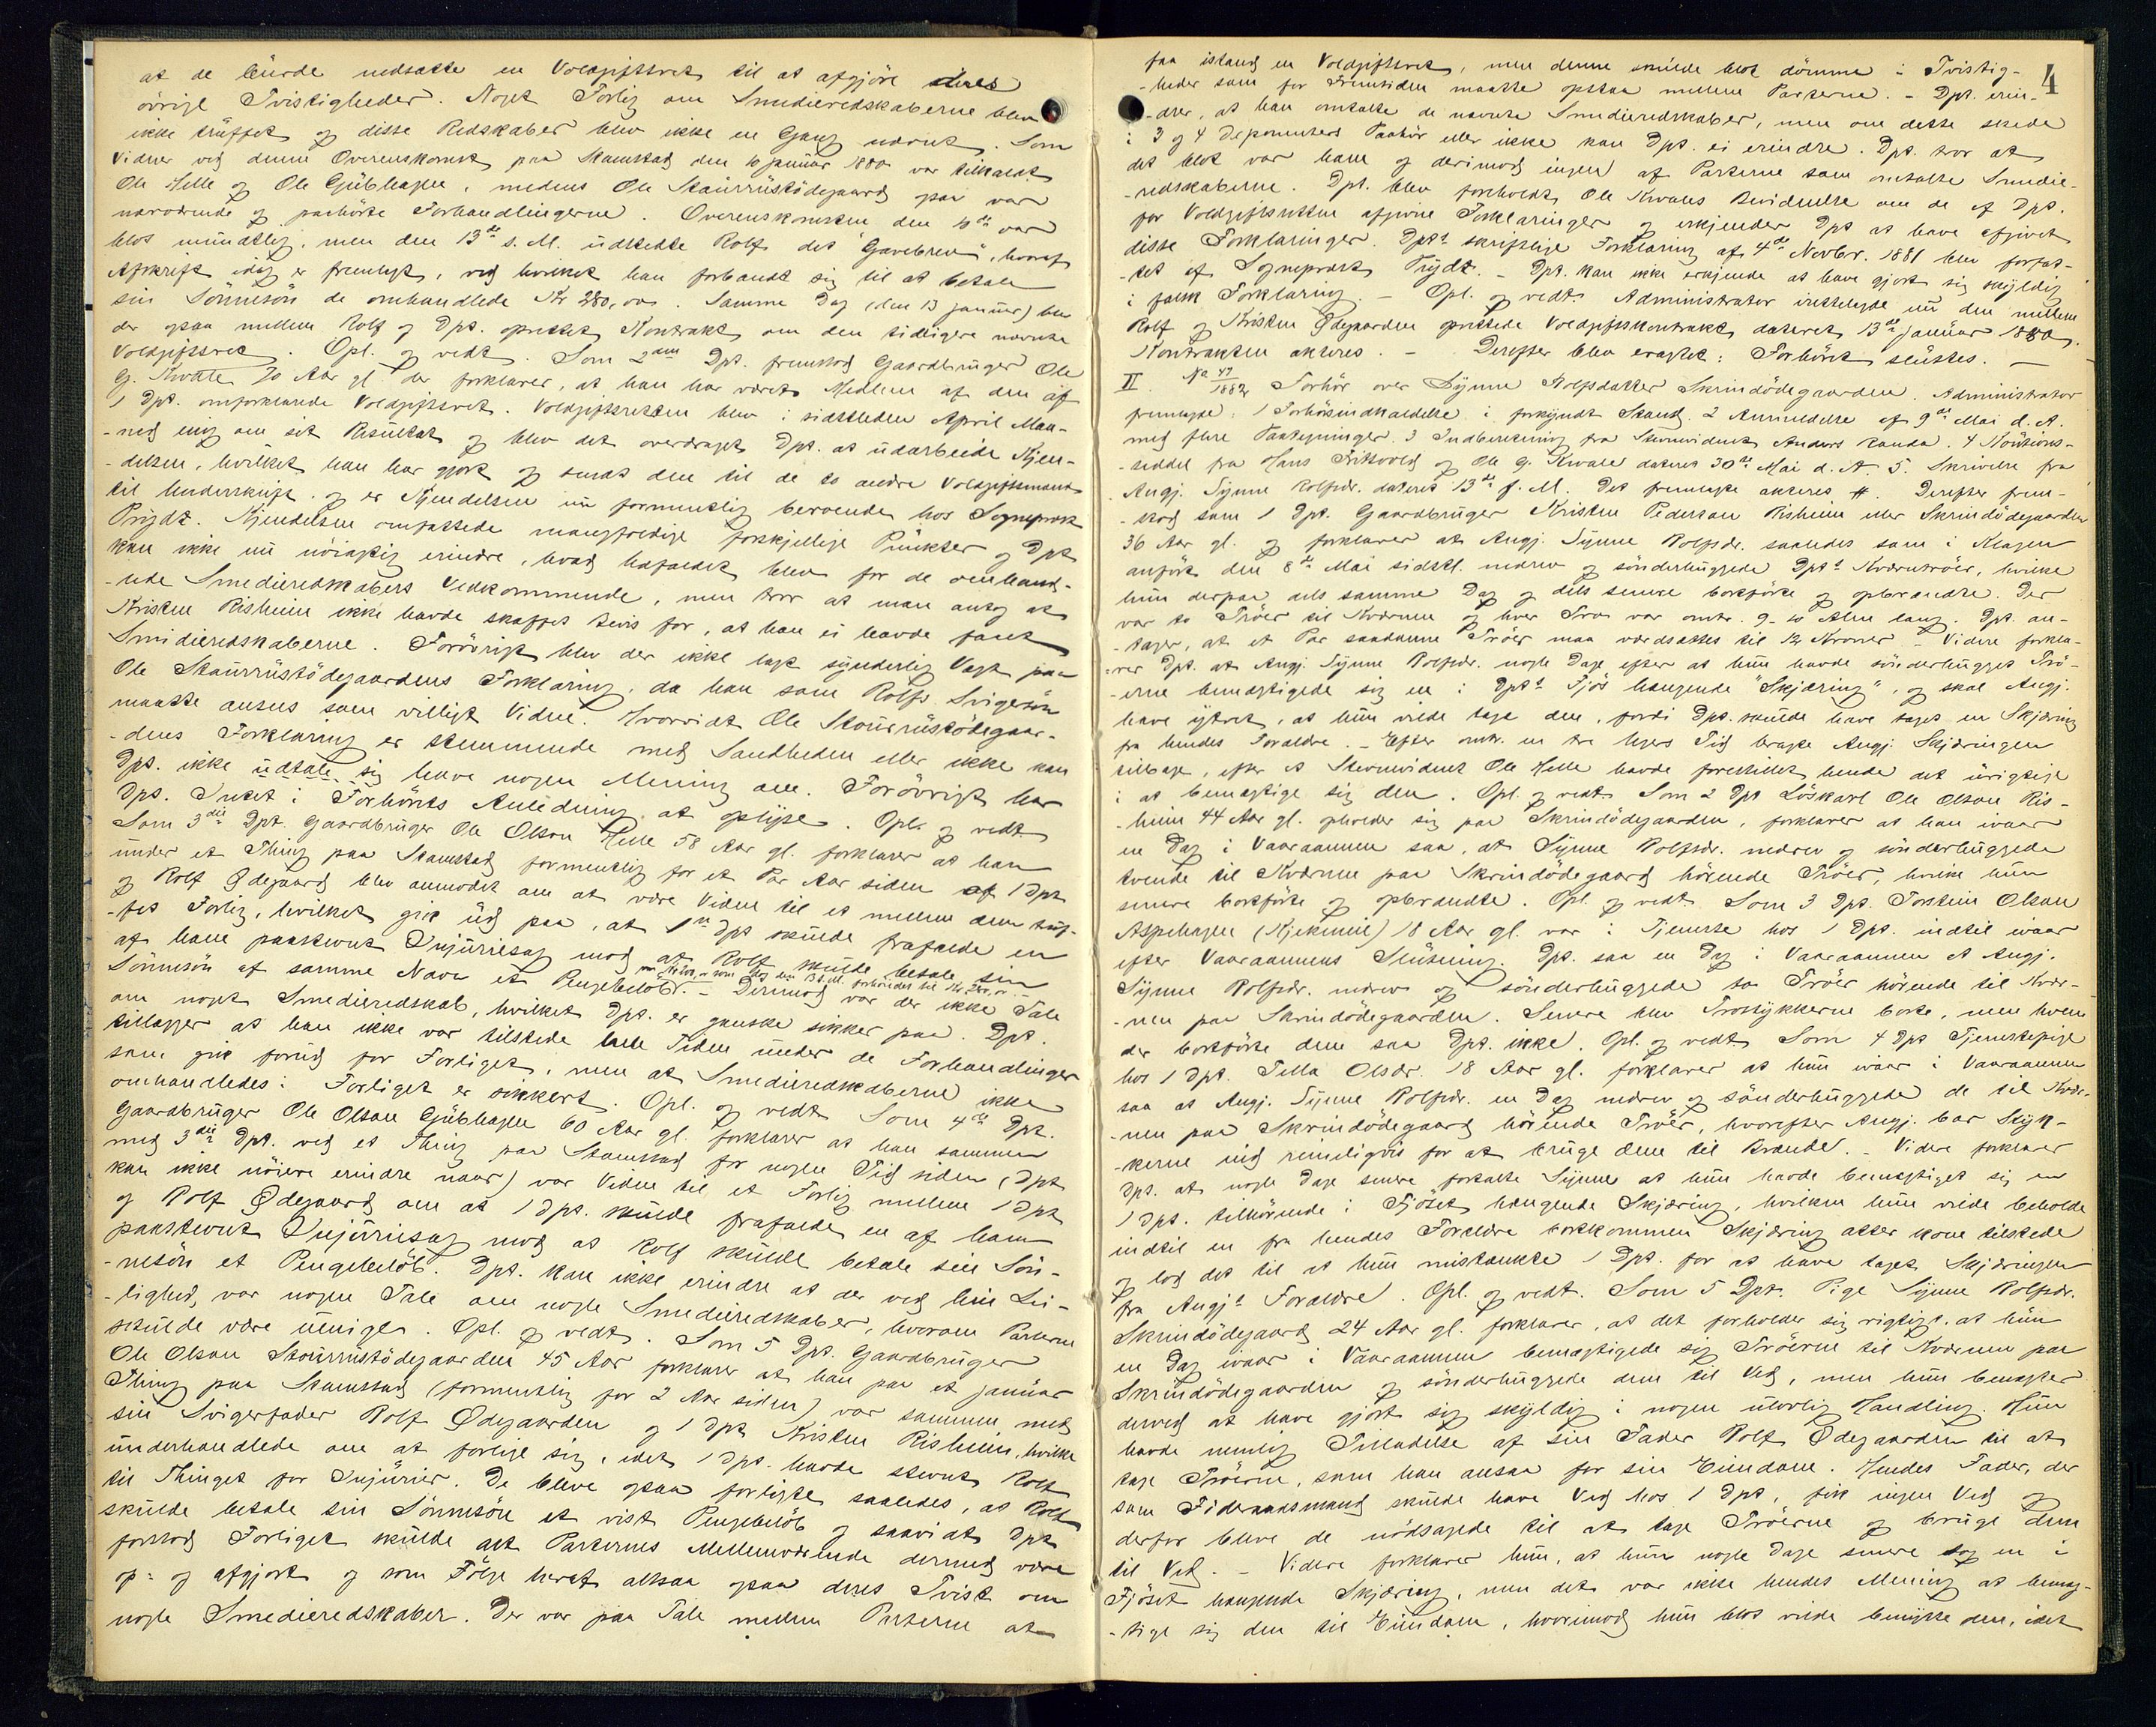 at de burde nedsætte en Voldgiftsret til at afgjöre deres
övrige Tvistigheder. Noget Forlig om Smedieredskaberne blev
ikke truffet og disse Redskaber blev ikke en Gang nævnt. Som
Vidner ved denne Overenskomst paa Stamstad den 10 Januar 1880 var tilkaldt
Ole Helle og Ole Gúbhagen, medens Ole Skaurrustödegaard ogsaa var
nærværende og paahörte Forhandlingerne. Overenskomsten den 10de var
blot mundtlig, men den 13de s. M. udstedte Rolf det "Gavebrev", hvoraf
Afskrift idag er fremlagt, ved hvilket han forbandt sig til at betale
sin Sönnesön de omhandlede Kr 280,00. Samme Dag (den 13 Januar) blev
der ogsaa mellem Rolf og Dpt. oprettet Kontrakt om den tidligere nævnte
Voldgiftsret. Opl. og vedt. Som 2den Dpt. fremstod Gaardbruger Ole
G. Kvale 70 Aar gl. der forklarer, at han har været Medlem af den af
1 Dpt. omforklarede Voldgiftsret. Voldgiftsretten blev i sidstleden April Maa-
-ned enig om sit Resultat og blev det overdraget Dpt. at udarbeide Kjen-
-delsen, hvilket han har gjort og sendt den til de to andre Voldgiftsmænd
til Underskrift. og er Kjendelsen nu formentlig beroende hos Sogneprest
Prydz. Kjendelsen omfattede mangfoldige forskjellige Punkter og Dpt
kan ikke nu nöiagtig erindre, hvad Udfaldet blev for de omhand-
-lede Smedieredskabers Vedkommende, men tror at man antog at
Kristen Risheim ikke havde skaffet Bevis for, at han ei havde faaet
Smidieredskaberne. Forövrigt blev der ikke lagt synderlig Vægt paa
Ole Skaurrustödegaardens Forklaring, da han som Rolfs Svigersön
maatte ansees som villigt Vidne. Hvorvidt Ole Skourrustödegaar-
-dens Forklaring er stemmende med Sandheden eller ikke kan
Dpt. ikke udtale sig have nogen Mening om. Forövrigt har
Dpt. Intet i Forhörets Anledning at oplyse. Opl. og vedt
Som 3die Dpt. Gaardbruger Ole Olson Helle 58 Aar gl. forklarer at han
under et Thing paa Stamstad formentlig for et Par Aar siden af 1 Dpt
og Rolf Ödegaard blev anmodet om at være Vidne til et mellem dem truf-
-fet Forlig, hvilket gik ud paa, at 1ste Dpt skulde frafalde en
af ham paastevnt Injuriesag mod at Rolf skulde betale sin
Sönnesön af samme Navn et Pengebelöb. – Derimod var der ikke Tale
om noget Smedieredskab, hvilket Dpt. er ganske sikker paa. Dpt.
tillægger at han ikke var tilstede hele Tiden under de Forhandlinger
som gik forud for Forliget, men at Smedieredskaberne ikke
omhandledes i Forliget er sikkert. Opl. og vedt Som 4de Dpt.
Gaardbruger Ole Olson Gubhagen 60 Aar gl. forklarer at han sammen
med 3die Dpt. ved et Thing paa Stamstad for nogen Tid siden (Dpt
kan ikke nöiere erindre naar) var Vidne til et Forlig mellem 1 Dpt
og Rolf Ödegaard om at 1 Dpt. skulde frafalde en af ham
paastevnt Injuriesag mod at Rolf skulde betale sin Sön-
-nesön et Pengebelöb. Dpt. kan ikke erindre at der ved hin Lei-
-lighed, var nogen Tale om nogle Smedieredskaber, hvorom Parterne
skulde være uenige. Opl. og vedt. Som 5 Dpt. Gaardbruger
Ole Olson Skourrustödegaarden 45 Aar forklarer at han paa et Januar
Thing paa Stamstad (formentlig for 2 Aar siden) var sammen med
sin Svigerfader Rolf Ödegaarden og 1 Dpt Kristen Risheim, hvilke
underhandlede om at forlige sig, idet 1 Dpt. havde stevnt Rolf
til Thinget for Injurier. De bleve ogsaa forligte saaledes, at Rolf
skulde betale sin Sönnesön et vist Pengebelöb og saavidt Dpt
forstod Forliget skulde alt Parternes Mellemværende dermed være
op- og afgjort og som Fölge heraf altsaa ogsaa deres Tvist om
nogle Smedieredskaber. Der var paa Tale mellem Parterne at
4
faa istand en Voldgiftsret, men denne skulde blot dömme i Tvistig-
-heder som for Fremtiden maatte opstaa mellem Parterne. – Dpt. erin-
-drer, at han omtalte de nævnte Smedieredskaber, men om dette skede
i 3 og 4 Deponenters Paahör eller ikke kan Dpt. ei erindre. Dpt. tror at
det blot var ham og derimod ingen af Parterne som omtalte Smedie-
-redskaberne. Dpt. blev foreholdt Ole Kvales Bevidnelse om de af Dpt.
for Voldgiftsretten afgivne Forklaringer og erkjender Dpt at have afgivet
disse Forklaringer. Dpts skriftlige Forklaring af 4de Novbr. 1881 blev forfat-
-tet af Sogneprest Prydz. – Dpt. kan ikke erkjende at have gjort sig skyldig
i falsk Forklaring. – Opl. og vedt. Administrator irettelagde nu den mellem
Rolf og Kristen Ödegaarden oprettede Voldgiftskontrakt dateret 13de Januar 1880.
Kontrakten akteres. – Derefter blev eragtet: Forhöret sluttes. –
II. No 47/1882 Forhör over Synne Rolfsdatter Skrindödegaarden. Administrator
fremlagde: 1 Forhörsindkaldelse i forkyndt Stand. 2 Anmeldelse af 9de Mai d. A.
med flere Paategninger. 3 Indberetning fra Stevnevidnet Anders Randa. 4 Kautions-
-seddel fra Hans Frikvold og Ole G. Kvale dateret 30te Mai d. A. 5. Skrivelse fra
Angj. Synne Rolfsdr. dateret 13de f. M. Det fremlagte akteres. Derefter frem-
-stod som 1 Dpt. Gaardbruger Kristen Pederson Risheim eller Skrindödegaarden
36 Aar gl. og forklarer at Angj. Synne Rolfsdr. saaledes som i Klagen
anfört den 8de Mai sidstl. nedrev og sönderhuggede Dpts Kværntröer, hvilke
hun derpaa dels samme Dag og dels senere bortförte og opbrændte. Der
var to Tröer til Kværnen og hver Tro var omtr. 9-10 Alen lang. Dpt. an-
-tager, at et Par saadanne Tröer maa værdsættes til 12 Kroner – Videre forkla-
-rer Dpt. at Angj. Synne Rolfsdr. nogle Dage efter at hun havde sönderhugget Trö-
-erne bemægtigede sig en i Dpts Fjös hængende "Skjæring", og skal Angj.
have ytret, at hun vilde tage den, fordi Dpt. skulde have taget en Skjæring
fra hendes Forældre. – Efter omtr. en tre Ugers Tid bragte Angj. Skjæringen
tilbage, efter at Stevnevidnet Ole Helle havde forestillet hende det urigtige
i at bemægtige sig den. Opl. og vedt. Som 2 Dpt Löskarl Ole Olson Ris-
-heim 44 Aar gl. opholder sig paa Skrindödegaarden, forklarer at han ivaar
en Dag i Vaaraannen saa, at Synne Rolfsdr. nedrev og sönderhuggede
tvende til Kværnen paa Skrindödegaard hörende Tröer, hvilke hun
senere bortförte og opbrændte. Opl. og vedt. Som 3 Dpt. Torstein Olson
Aspehagen (Kjekmie) 18 Aar gl. var i Tjeneste hos 1 Dpt. indtil ivaar
efter Vaaraannens Slutning. Dpt. saa en Dag i Vaaraannen at Angj.
Synne Rolfsdr. nedrev og sönderhuggede to Tröer hörende til Kvær-
-nen paa Skrindödegaarden. Senere blev Trostykkerne borte, men hvem
der bortförte dem saa Dpt. ikke. Opl. og vedt. Som 4 Dpt Tjenestepige
hos 1 Dpt. Tilla Olsdr. 18 Aar gl. forklarer at hun ivaar i Vaaraannen
saa at Angj. Synne Rolfsdr. en Dag nedrev og sönderhuggede de til Kvær-
-nen paa Skrindödegaard hörende Tröer, hvorefter Angj. bar Styk-
-kerne ind rimeligvis for at bruge dem til Brænde. – Videre forklarer
Dpt. at nogle Dage senere fortalte Synne at hun havde bemægtiget sig en
1 Dpt. tilhörende i Fjöset hængende Skjæring, hvilken hun vilde beholde
indtil en fra hendes Forældre bortkommen Skjæring atter kom tilstede
og lod det til at hun mistænkte 1 Dpt. for at have taget Skjæringen
fra Angjs Forældre. Opl. og vedt. Som 5 Dpt. Pige Synne Rolfsdr.
Skrindödegaard 24 Aar gl. forklarer, at det forholder sig rigtigt, at hun
en Dag ivaar i Vaaraannen bemægtigede sig Tröerne til Kværnen paa
Skrindödegaarden og sönderhuggede dem til Ved, men hun benægter
derved at have gjort sig skyldig i nogen ulovlig Handling. Hun
havde nemlig Tilladelse af sin Fader Rolf Ödegaarden til at
tage Tröerne, som han ansaa for sin Eiendom. Hendes Fader, der
som Föderaadsmand skulde have Ved hos 1 Dpt, fik ingen Ved og
derfor bleve de nödsagede til at tage Tröerne og bruge dem
til Ved. – Videre forklarer hun, at hun nogle Dage senere tog en i
Fjöset hængende Skjæring, men det var ikke hendes Mening at bemæg-
-tige sig den til Eiendom, hvorimod hun blot vilde benytte den, idet